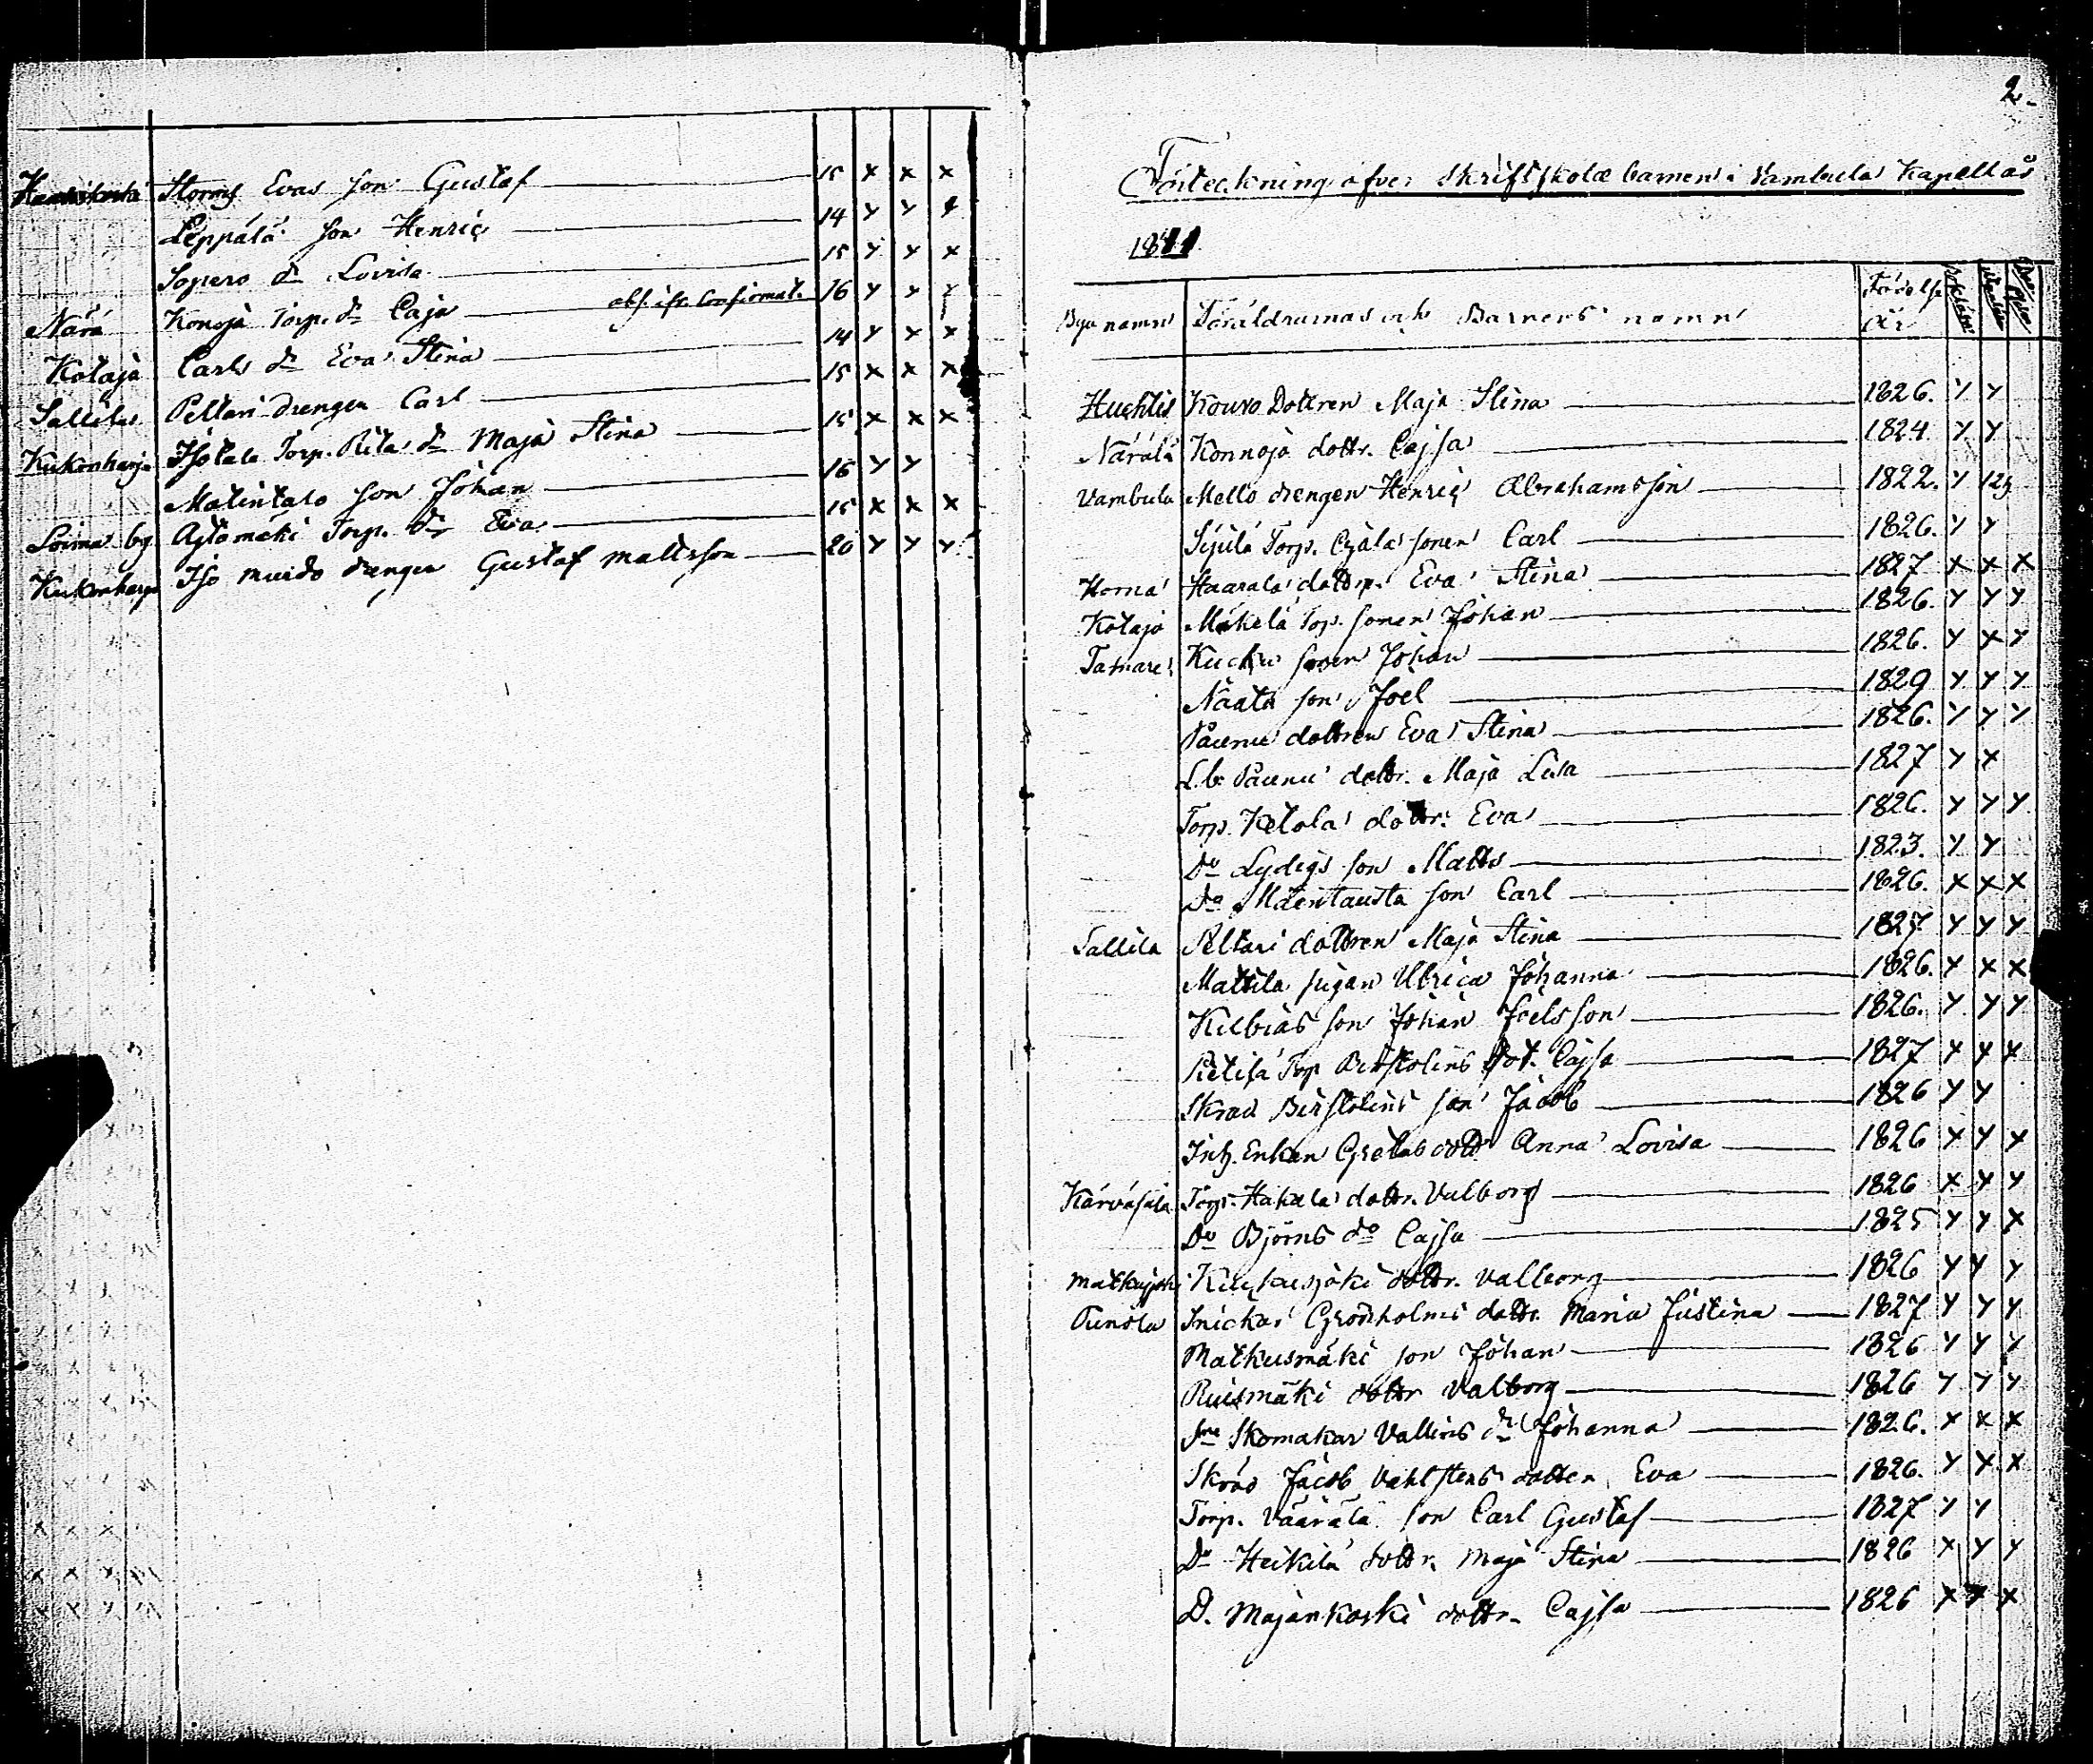 Storms Evas son Gustaf 15 x x x
Leppälä son Henric 14 y y y
Sopero dr Lovisa 15 y y x
Närä Konoja Torp. dr Caja obs. Confirmat. 16 y y y
Kotaja Carls dr Eva Stina 14 y x x
Sallila Peltari drengen Carl 15 x x x
Kukonharja Isotalo Torp. Rita dr Maja Stina 15 x x x
Matintalo son Johan 16 y y
Loima by Ajlomäki Torp. dr Eva 15 x x x
Kukonharja Iso muido drengen Gustaf Mattsson 20 y y y
2.
Förteckning öfver Skriftskolæ barnen i Vambula Kapell år
1841.
Bya namn Föräldrarnas och Barnens namn Födelse År
Huchtis Kouvo Dottren Maja Stina 1826. y y
Närälä Konnoja dottr. Cajsa 1824 y y
Vambula Mello drengen Henric Abrahamsson 1822. y
Torp. sonen Carl 1826. y y
Horna Haarala dottr. Eva Stina 1827 x x x
Kotaja Mäkelä Torp. sonen Johan 1826. y y y
Tamare Kucku sonen Johan 1826. y x y
Näätä son Joel 1829 y y y
Paunu dottren Eva Stina 1826. y y y
L.b. Paunu dottr. Maja Lisa 1827 y x
Torp. Ketola dottr. Eva 1826. y y y
Do Lydigs son Matts 1823. y y
Do Mäentausta son Carl 1826. x x x
Sallila Peltari dottren Maja Stina 1827 y y y
Mattila pigan Ulrica Johanna 1826. y x x
Kilbias son Johan Joelsson 1826. y y y
Pietilä Torp dot. Cajsa 1827 x x x
son Jacob 1826 y y
Inh. Enkan Gretas dottr Anna Lovisa 1826 x y x
Kärväsälä Torp. Hakala dottr. Valborg 1826 x y y
Do Björns do Cajsa 1825 y y x
dottr. Valborg 1826 y y y
Punola Snickar Grönholms dottr. Maria Justina 1827 y y y
Matkusmäki son Johan 1826 y y y
Ruismäki dottr Valborg 1826 y y y
Skomakar Vallins dr Johanna 1826. x x x
Jacob Vahlstens dotter Eva 1826. y y x
Torp. Väärälä son Carl Gustaf 1827 y y
Do Heikilä dottr. Maja Stina 1826 x y y
D. Majankoski dottr. Cajsa 1826 x x x